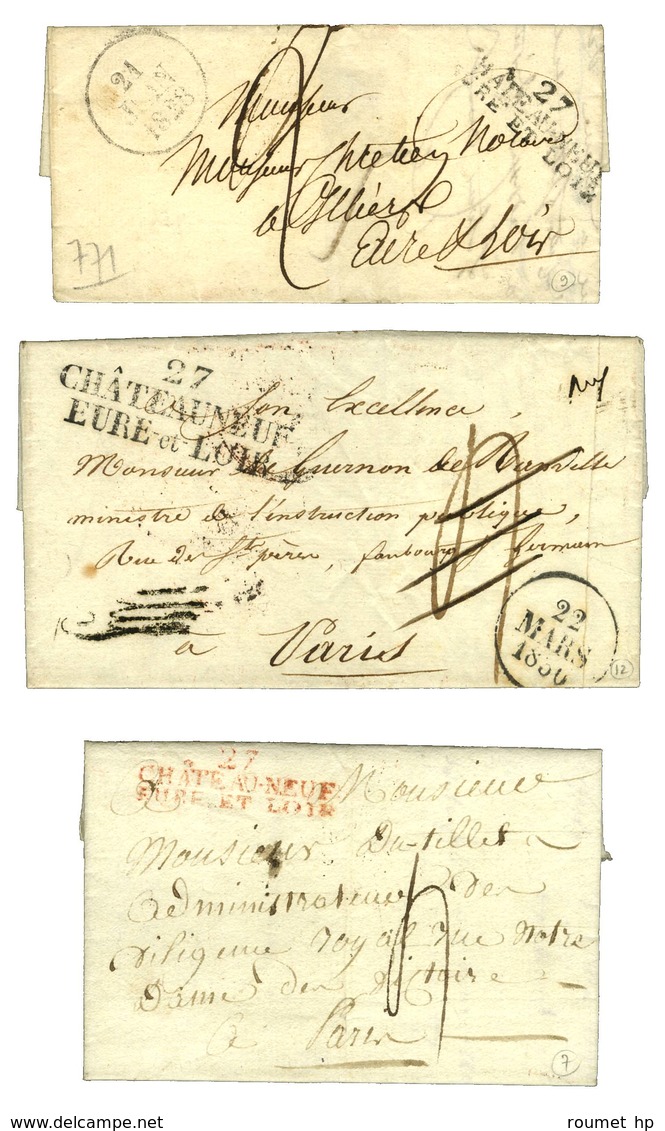 21
JAN
1828
27
CHATEAU-NEUF
EURE ET LOIR
Monsieur
Monsieur Chretien Notaire
à Illiers
Eure & Loir
771
9
27
CHÂTEAUNEUF
EURE-et-LOIR
à Son Excellence,
Monsieur de Guernon de Ranville
ministre de l'instruction publique,
Rue des Sts pères, faubourg St Germain
à Paris
22
MARS
1830
12
27
CHATEAU-NEUF
EURE ET LOIR
A Monsieur
Monsieur Dutillet
administrateur des
diligence royal rue notre
Dame des victoire
A Paris
7
roumet hp